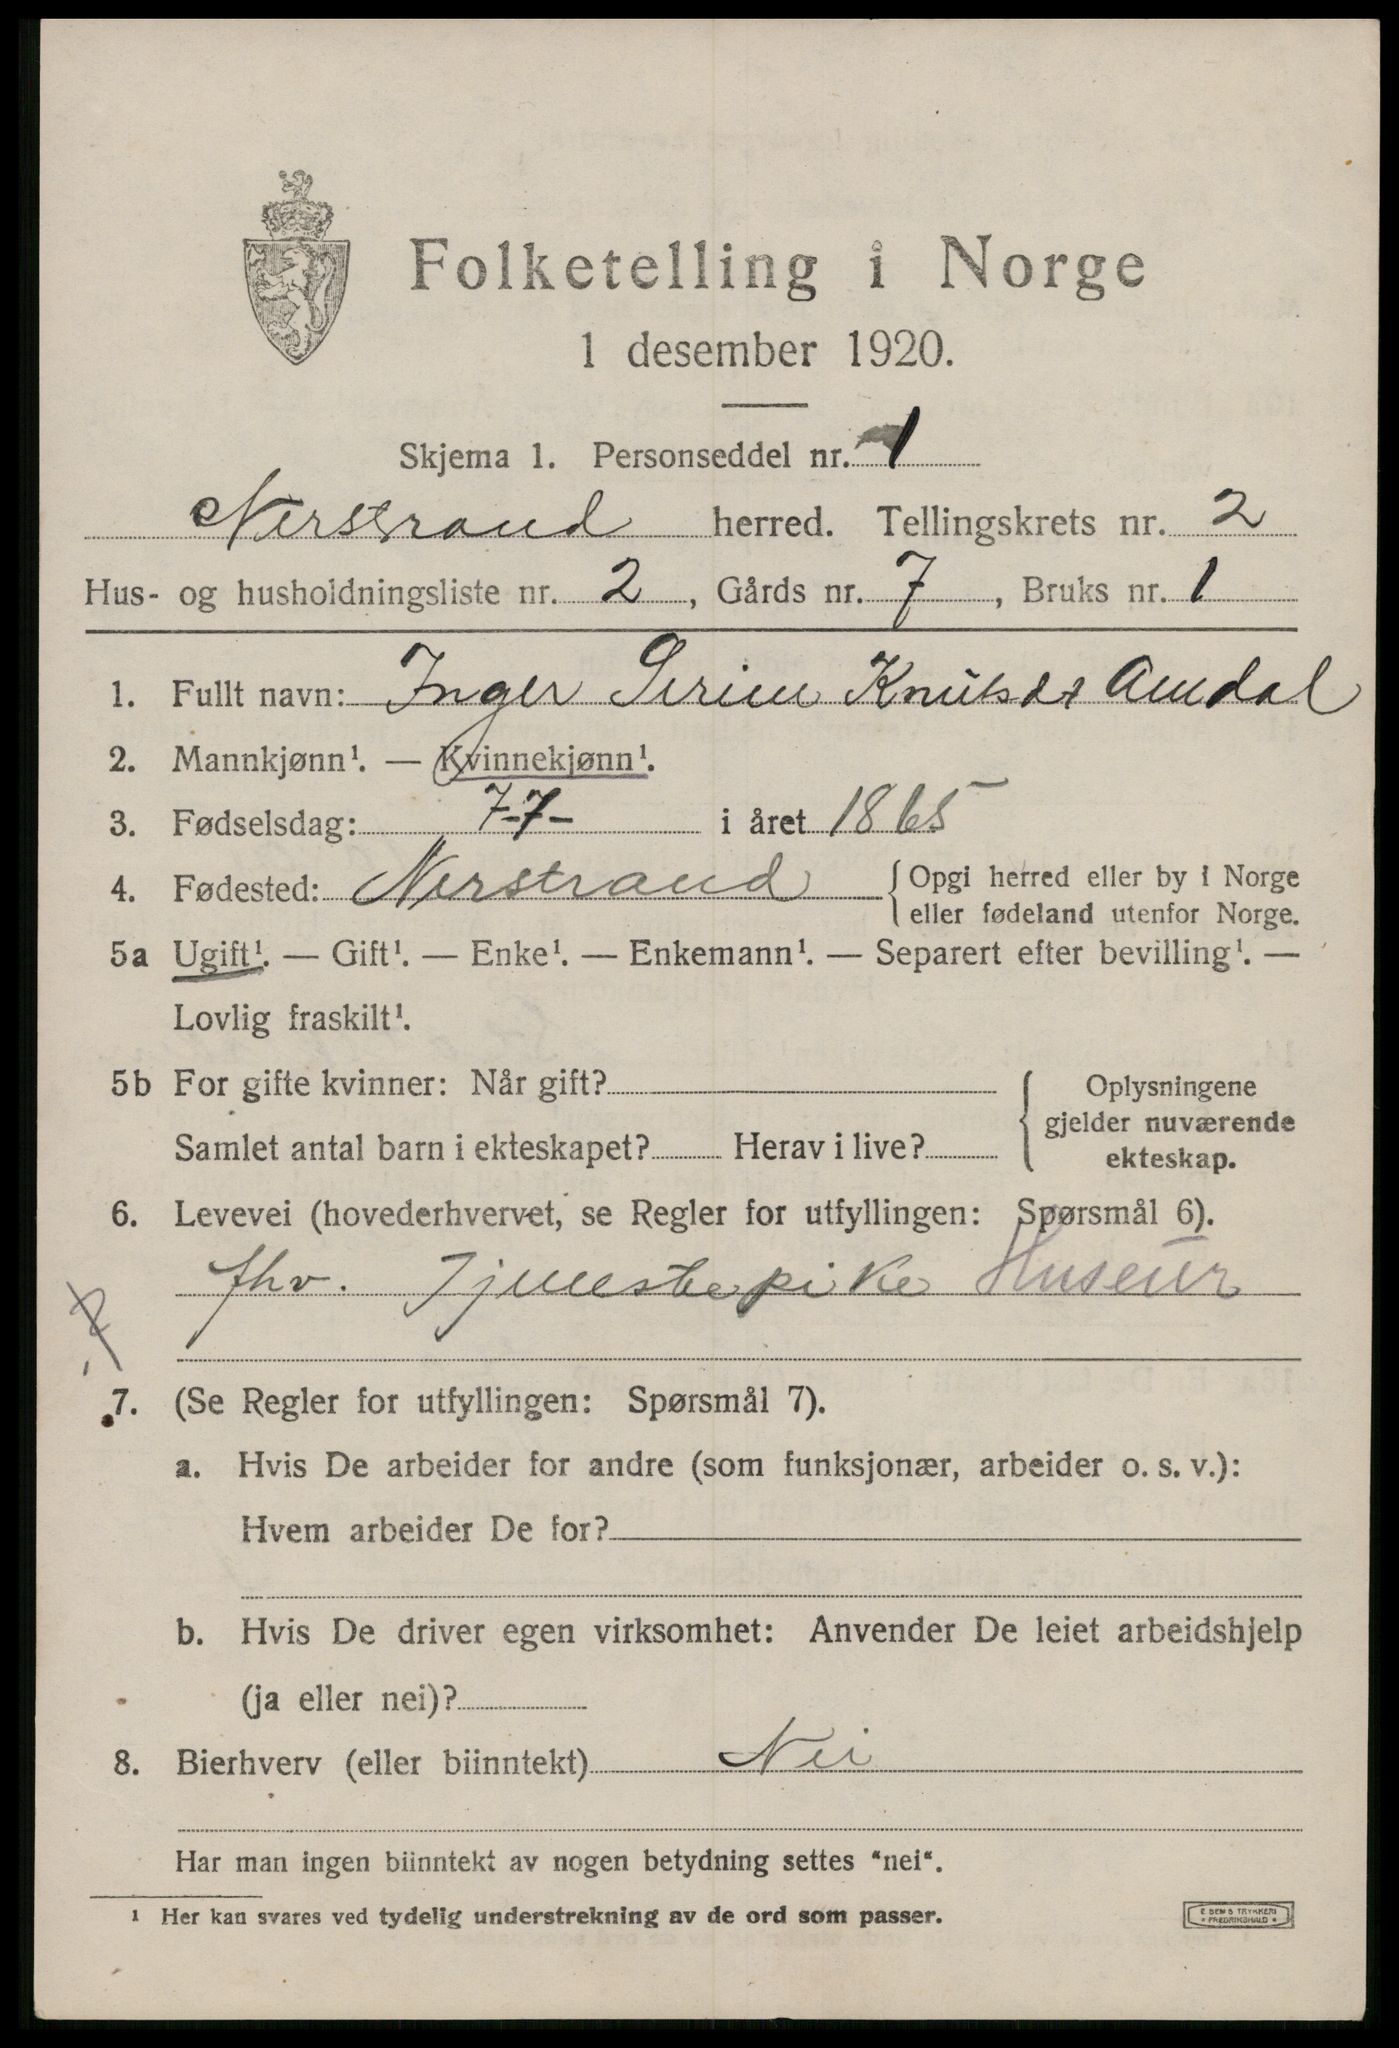 Folketelling i Norge
1 desember 1920.
Skjema 1. Personseddel nr. 1
Nerstrand herred. Tellingskrets nr. 2
Hus- og husholdningsliste nr. 2, Gårds nr. 7, Bruks nr. 1
1. Fullt navn: Inger Serine Knutsdr Amdal
2. Mannkjønn¹. — Kvinnekjønn¹.
3. Fødselsdag: 7-7- i året 1865
4. Fødested: Nerstrand { Opgi herred eller by i Norge
eller fødeland utenfor Norge.
5a Ugift¹. — Gift¹. — Enke¹. — Enkemann¹. — Separert efter bevilling¹. —
Lovlig fraskilt¹.
5b For gifte kvinner: Når gift? { Oplysningene
gjelder nuværende
Samlet antal barn i ekteskapet? Herav i live? ekteskap.
6. Levevei (hovederhvervet, se Regler for utfyllingen: Spørsmål 6).
fhv. Tjenestepike
7. (Se Regler for utfyllingen: Spørsmål 7).
a. Hvis De arbeider for andre (som funksjonær, arbeider o. s. v.):
Hvem arbeider De for?
b. Hvis De driver egen virksomhet: Anvender De leiet arbeidshjelp
(ja eller nei)?
8. Bierhverv (eller biinntekt) Nei
Har man ingen biinntekt av nogen betydning settes "nei".
¹ Her kan svares ved tydelig understrekning av de ord som passer.
E SEMS TRYKKERI
FREDRIKSHALD